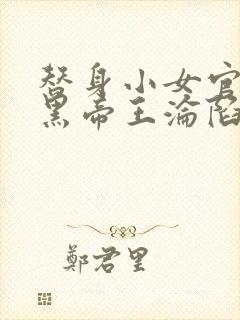 替身小女官
黑帝王淪陷
鄭君里